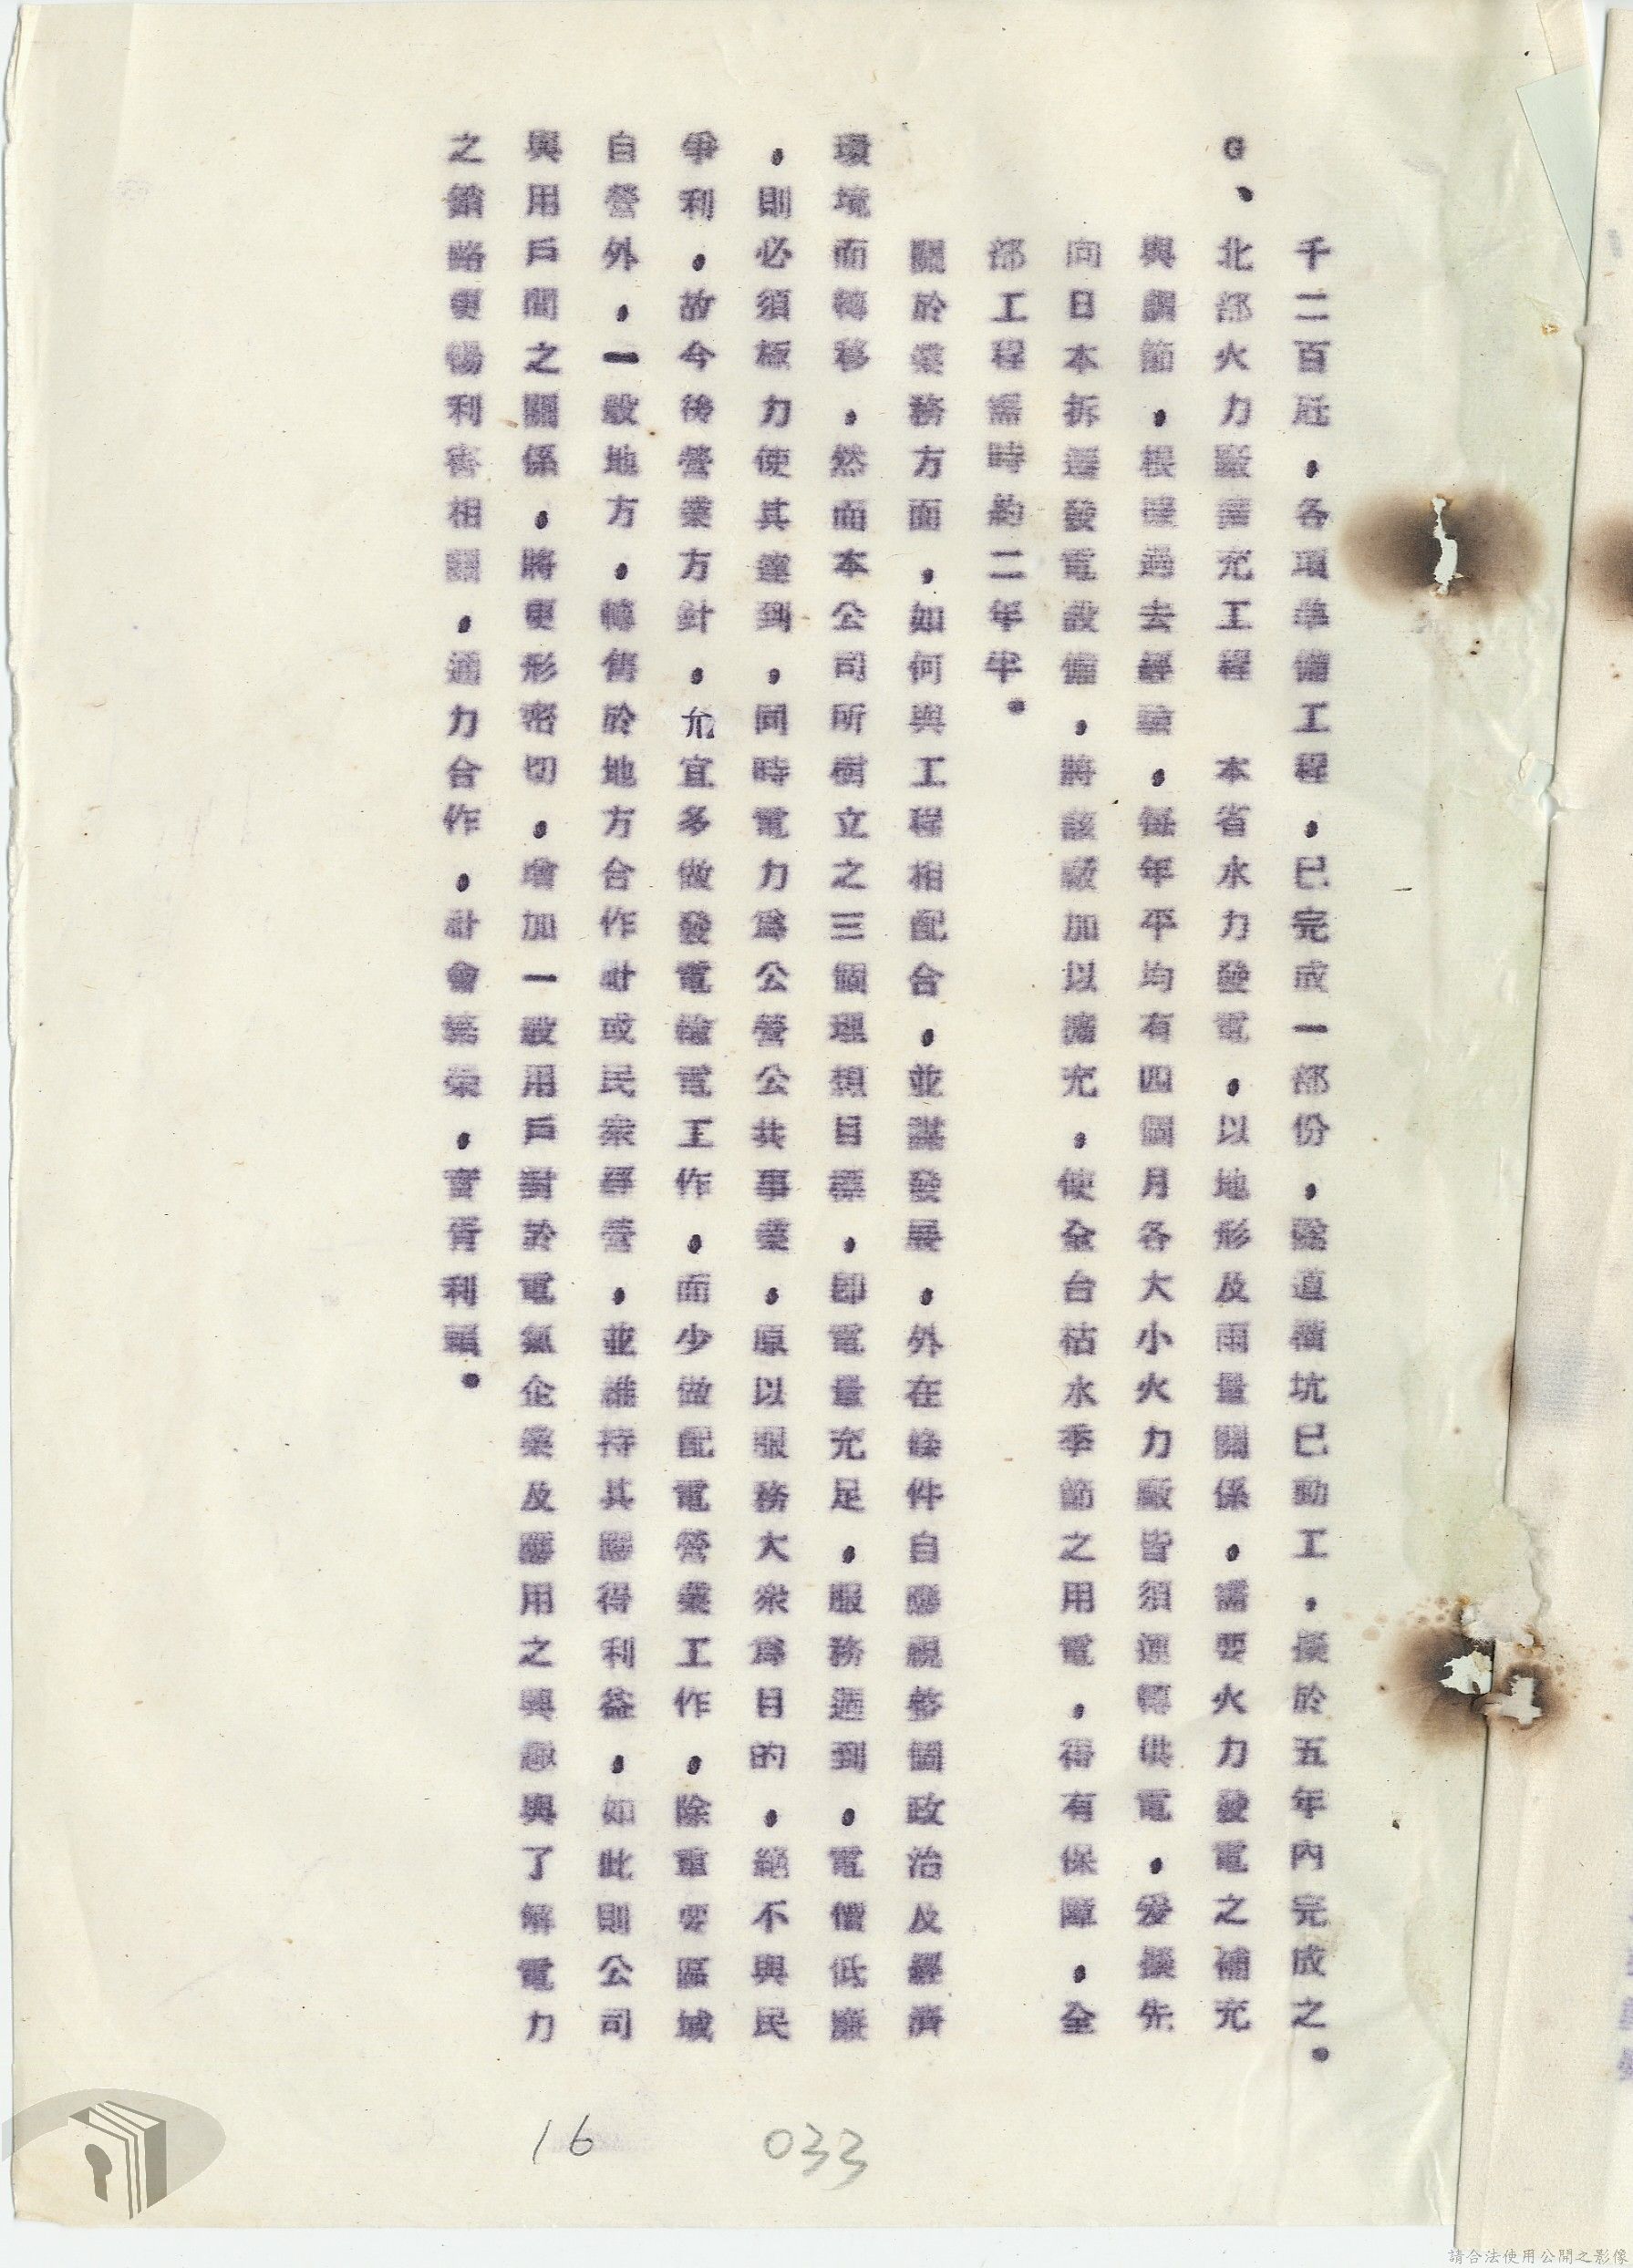 千二百瓩，各項準備工程，已完成一部份，隧道橫坑已動工，擬於五年內完成之。
G、北部火力廠擴充工程　本省水力發電，以地形及雨量關係，需要火力發電之補充
與調節，根據過去經驗，每年平均有四個月各大小火力廠皆須運轉供電，爰擬先
向日本拆遷發電設備，將該廠加以擴充，使全台枯水季節之用電，得有保障，全
部工程需時約二年半。
關於業務方面，如何與工程相配合，並謀發展，外在條件自應視整個政治及經濟
環境而轉移，然而本公司所樹立之三個理想目標，卽電量充足，服務週到，電價低廉
，則必須極力使其達到，同時電力爲公營公共事業，原以服務大衆爲目的，絕不與民
爭利，故今後營業方針，允宜多做發電輸電工作，而少做配電營業工作，除重要區域
自營外，一般地方，轉售於地方合作社或民衆經營，並維持其應得利益，如此則公司
與用戶間之關係，將更形密切，增加一般用戶對於電氣企業及應用之興趣與了解電力
之銷路更暢利害相關，通力合作，社會繁榮，實胥利賴。
16
033
請合法使用公開之影像